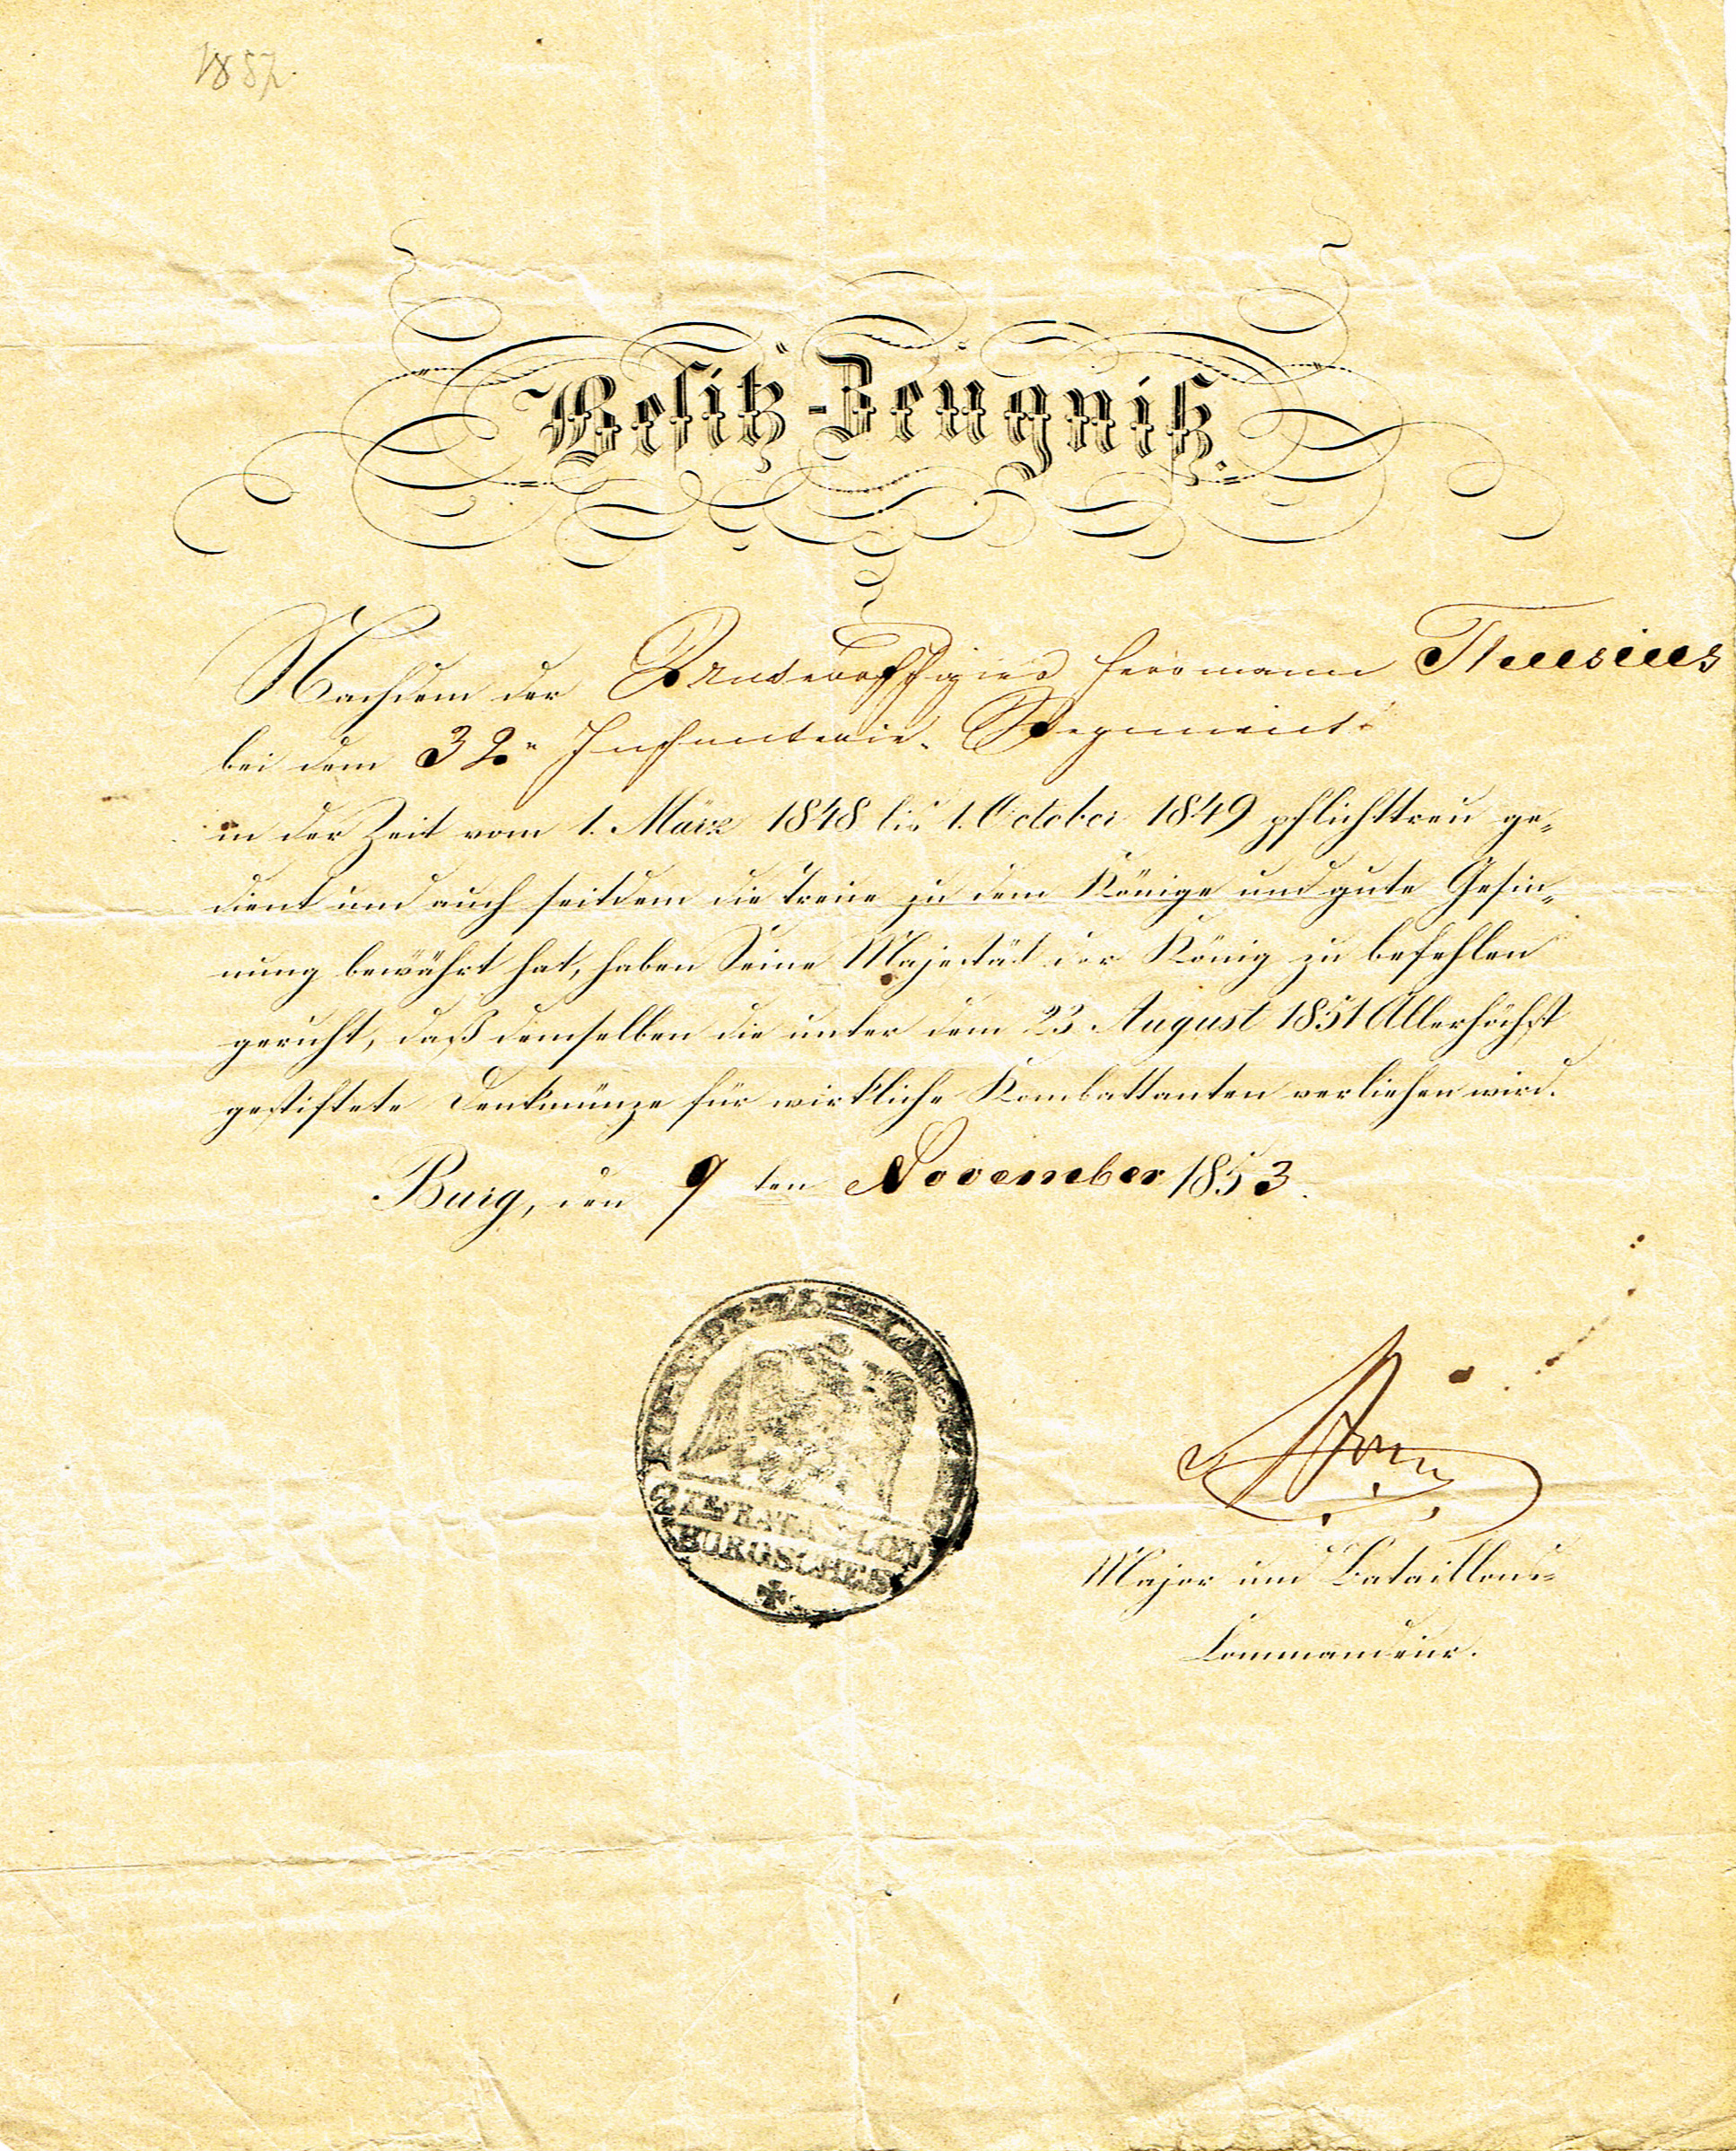 1852.
Besitz-Zeugniß.
Nachdem der Unteroffizier Herrmann
bei dem 32n Infanterie-Regiment
in der Zeit vom 1. März 1848 bis 1. October 1849 pflichttreu ge-
dient und auch seitdem die Treue zu dem Könige und gute Gesin-
nung bewährt hat, haben Seine Majestät der König zu befehlen
geruht, daß demselben die unter dem 23. August 1851 Allerhöchst
gestiftete Denkmünze für wirkliche Kombattanten verliehen wird.
Burg, den 9ten November 1853.
BURGSCHES
Major und Bataillons-
Commandeur.